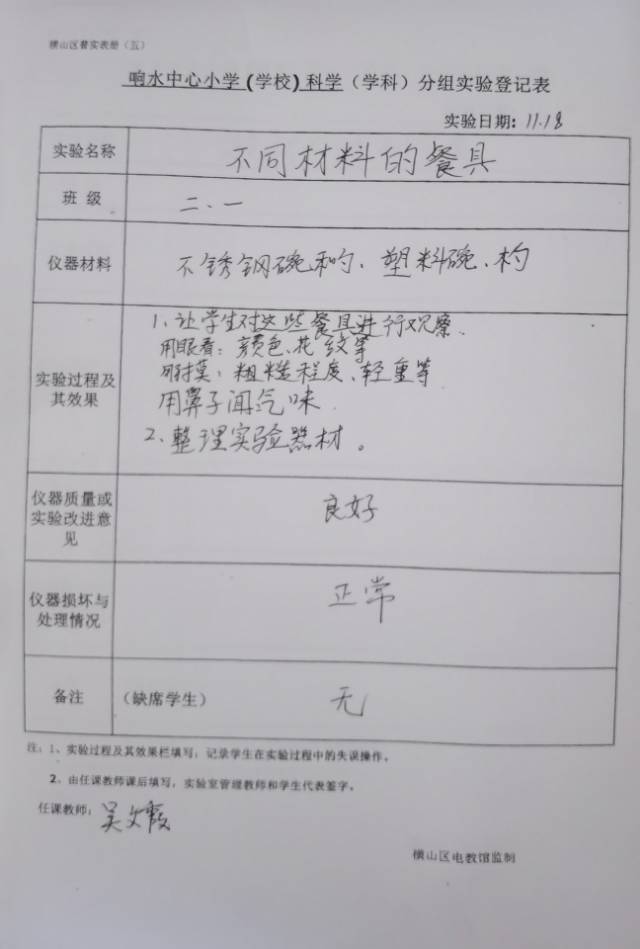 横山区普实表册（五）
响水中心小学(学校)科学（学科）分组实验登记表
实验日期：11.18
实验名称 不同材料的餐具
班 级 二、一
仪器材料 不锈钢碗和杓、塑料碗、杓
实验过程及其效果
1、让学生对这些餐具进行观察.
用眼看：颜色、花纹等
用手摸：粗糙程度、轻重等
用鼻子闻气味
2、整理实验器材。
仪器质量或
实验改进意
见
良好
仪器损坏与
处理情况
正常
备注 （缺席学生） 无
注：1、实验过程及其效果栏填写：记录学生在实验过程中的失误操作。
2、由任课教师课后填写，实验室管理教师和学生代表签字。
任课教师：吴文霞
横山区电教馆监制